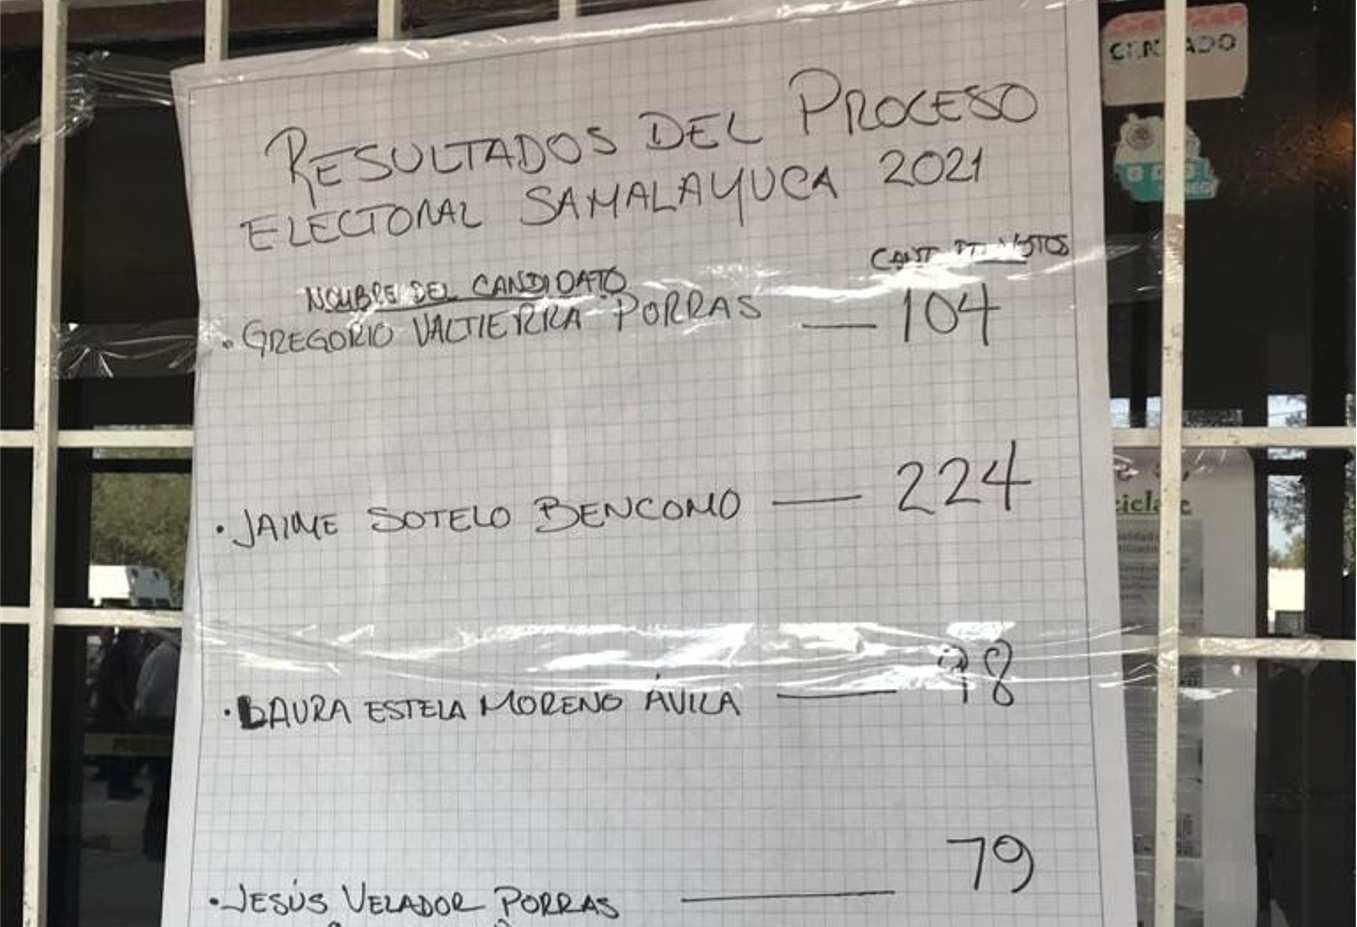 RESULTADOS DEL PROCESO
ELECTORAL SAMALAYUCA 2021
NOMBRE DEL CANDIDATO CANT. DE VOTOS
• GREGORIO VALTIERRA PORRAS — 104
• JAIME SOTELO BENCOMO — 224
• LAURA ESTELA MORENO ÁVILA — 98
• JESÚS VELADOR PORRAS — 79